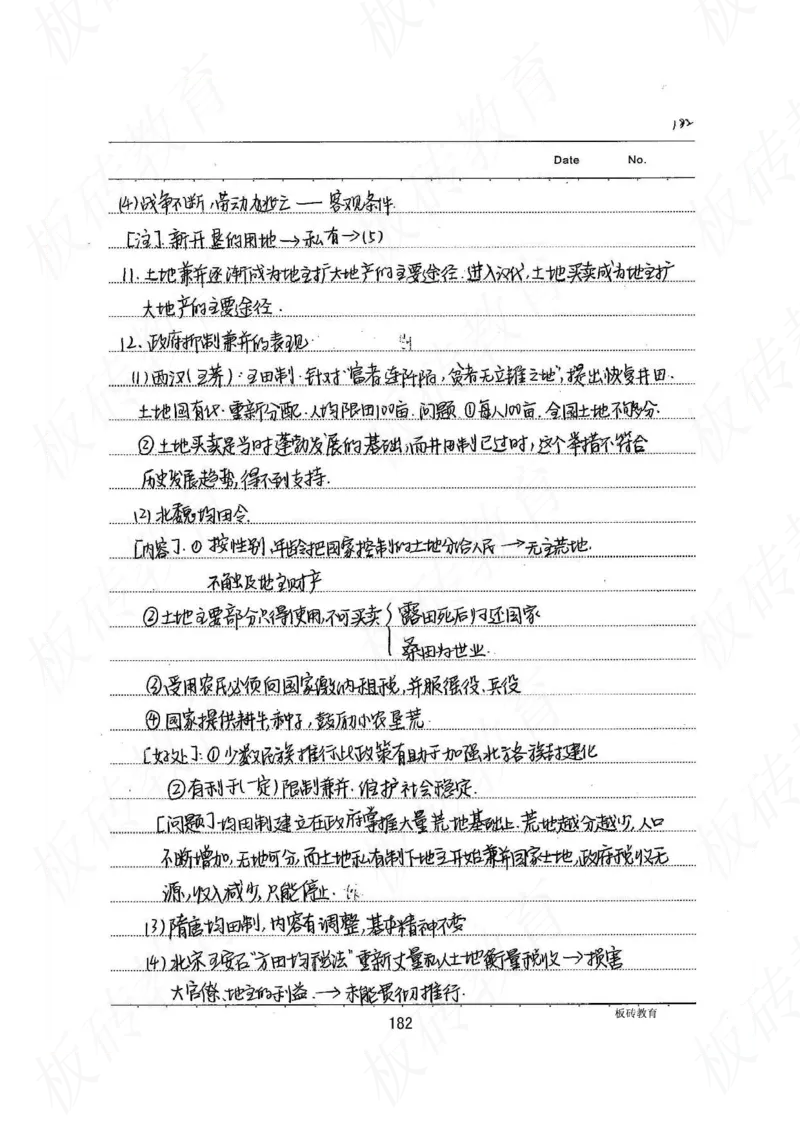 182
Date No.
(4)战争不断,劳动力逃亡——客观条件.
[注].新开垦的用地→私有→(5)
11.土地兼并逐渐成为地主扩大地产的主要途径.进入汉代,土地买卖成为地主扩
大地产的主要途径.
12.政府抑制兼并的表现
(1)西汉(王莽):王田制.针对"富者连阡陌,贫者无立锥之地",提出恢复井田.
土地国有化.重新分配.人均限田100亩.问题①每人100亩.全国土地不够分.
②土地买卖是当时蓬勃发展的基础,而井田制已过时,这个举措不符合
历史发展趋势,得不到支持.
(2)北魏均田令.
[内容].①按性别,年龄把国家控制的土地分给人民→无主荒地.
不触及地主财产
②土地主要部分只得使用,不可买卖{露田死后归还国家
桑田为世业.
③受用农民必须向国家缴纳租税,并服徭役、兵役
④国家提供耕牛、种子,鼓励小农垦荒.
[好处]:①少数民族推行此政策有助于加强北方各族封建化
②有利于(一定)限制兼并.维护社会稳定.
[问题]均田制建立在政府掌握大量荒地基础上.荒地越分越少,人口
不断增加,无地可分,而土地私有制下地主开始兼并国家土地,政府税收无
源,收入减少,只能停止.
(3)隋唐均田制,内容有调整,基本精神不变
(4)北宋王安石"方田均税法"重新丈量私人土地衡量税收→损害
大官僚、地主的利益.→未能贯彻推行.
182
板砖教育